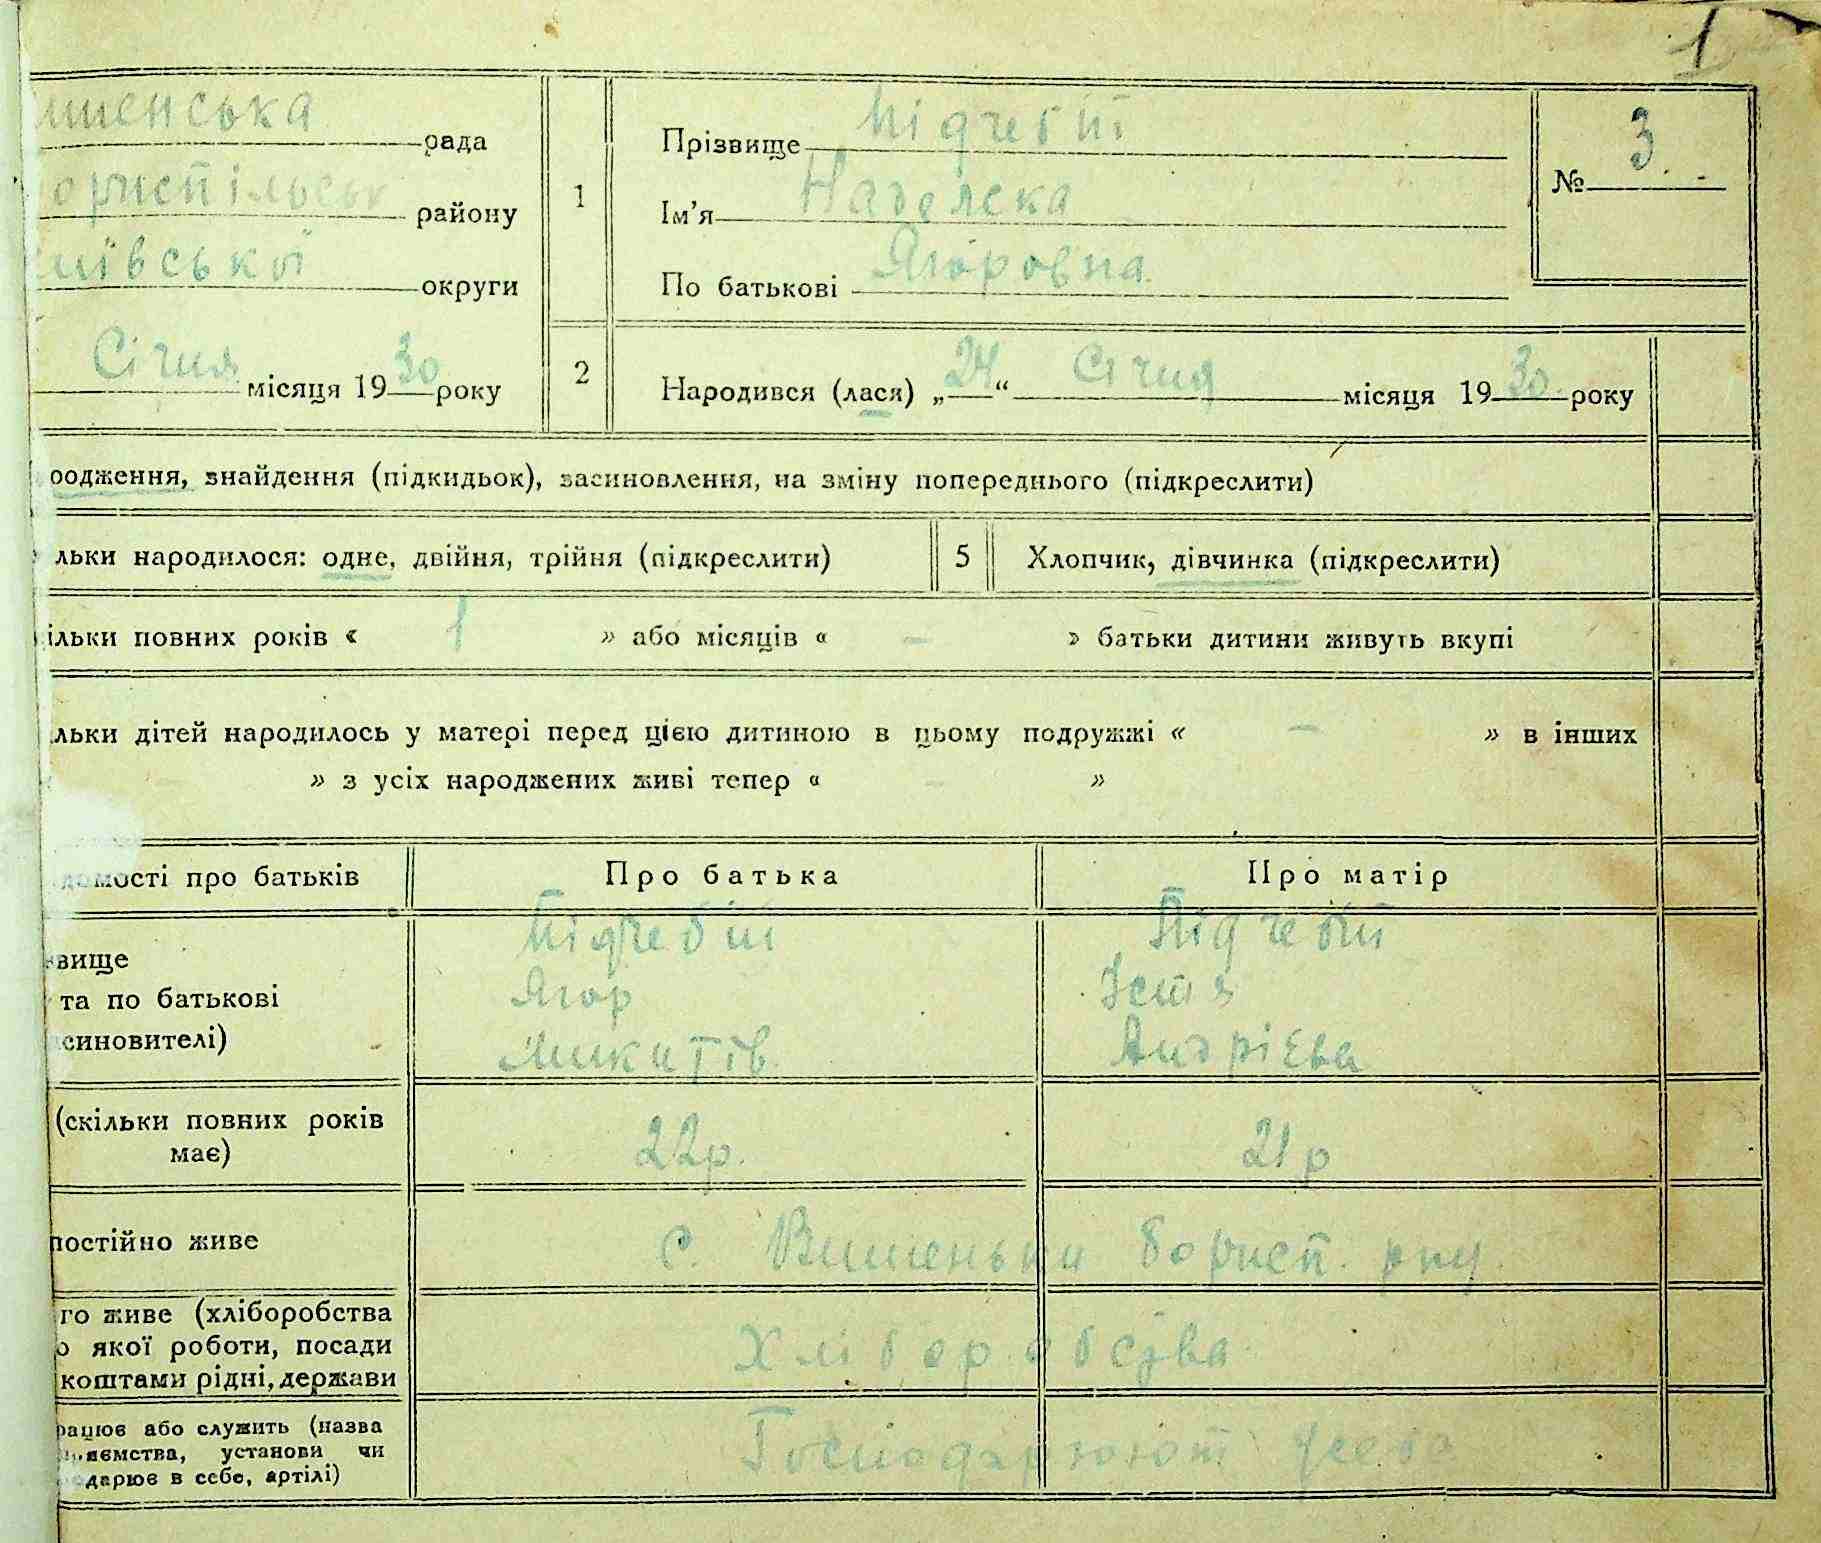 1
ишенська рада
ориспільськ району
иївської округи
Січня місяця 1930 року
1
Прізвище Підчебій
Ім'я
По батькові Ягоровна
№ 3
2
Народився (лася) „24“ Січня місяця 1930 року
родження, знайдення (підкидьок), засиновлення, на зміну попереднього (підкреслити)
льки народилося: одне, двійня, трійня (підкреслити)
5
Хлопчик, дівчинка (підкреслити)
ільки повних років « 1 » або місяців « – » батьки дитини живуть вкупі
льки дітей народилось у матері перед цією дитиною в цьому подружжі « – » в інших
» з усіх народжених живі тепер « – »
домості про батьків
Про батька
Про матір
звище
та по батькові
синовителі)
Підчебій
Ягор
Микитів
Підчебій
Устя
Андрієва
(скільки повних років
має)
22р.
21р
постійно живе
с. Вишеньки Борисп. рну.
го живе (хліборобства
о якої роботи, посади
коштами рідні, держави
Хліборобства
рацює або служить (назва
приємства, установи чи
одарює в себе, артілі)
Господарюют у себе